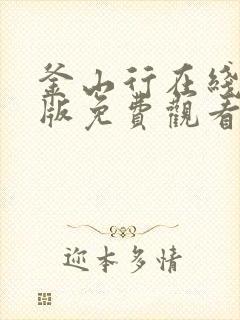 釜山行在綫
版免費觀看
迩本多情